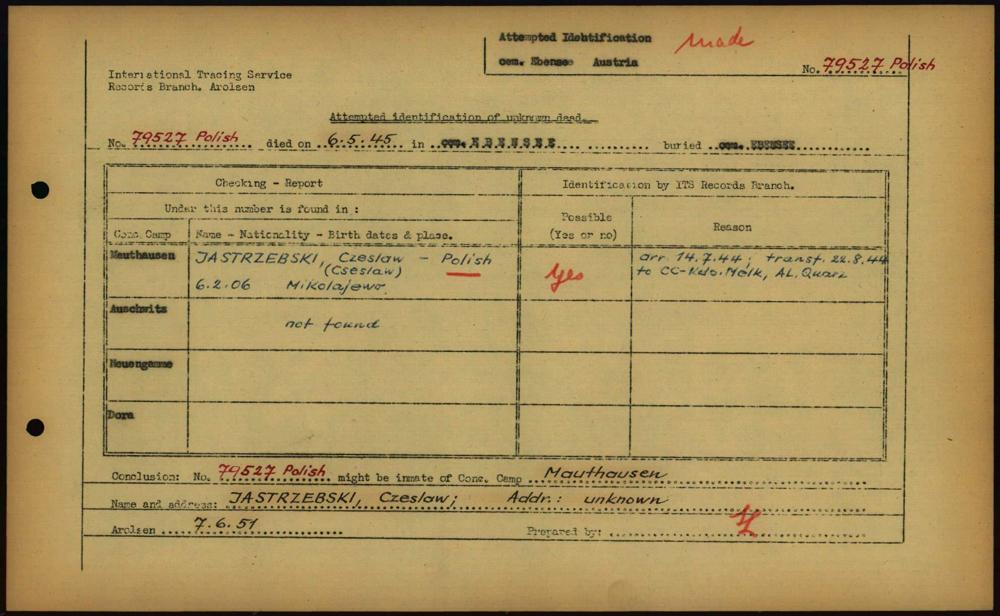 Attempted Identification made
cem. Ebensee Austria
No. 79527 Polish
International Tracing Service
Records Branch. Arolsen
Attempted identification of unknown dead.
No. 79527 Polish died on 6.5.45 in cem. EBENSEE buried cem. EBENSEE
Checking - Report
Identification by ITS Records Branch.
Under this number is found in :
Possible
(Yes or no)
Reason
Conc. Camp
Name - Nationality - Birth dates & place.
Mauthausen
JASTRZEBSKI, Czeslaw - Polish
(Cseslaw)
6.2.06 Mikolajewo
yes
arr. 14.7.44; transf. 22.8.44
to CC-Kdo. Melk, AL. Quarz
Auschwitz
not found
Neuengamme
Dora
Conclusion: No. 79527 Polish might be inmate of Conc. Camp Mauthausen
Name and address: JASTRZEBSKI, Czeslaw; Addr.: unknown
Arolsen 7.6.51
Prepared by: